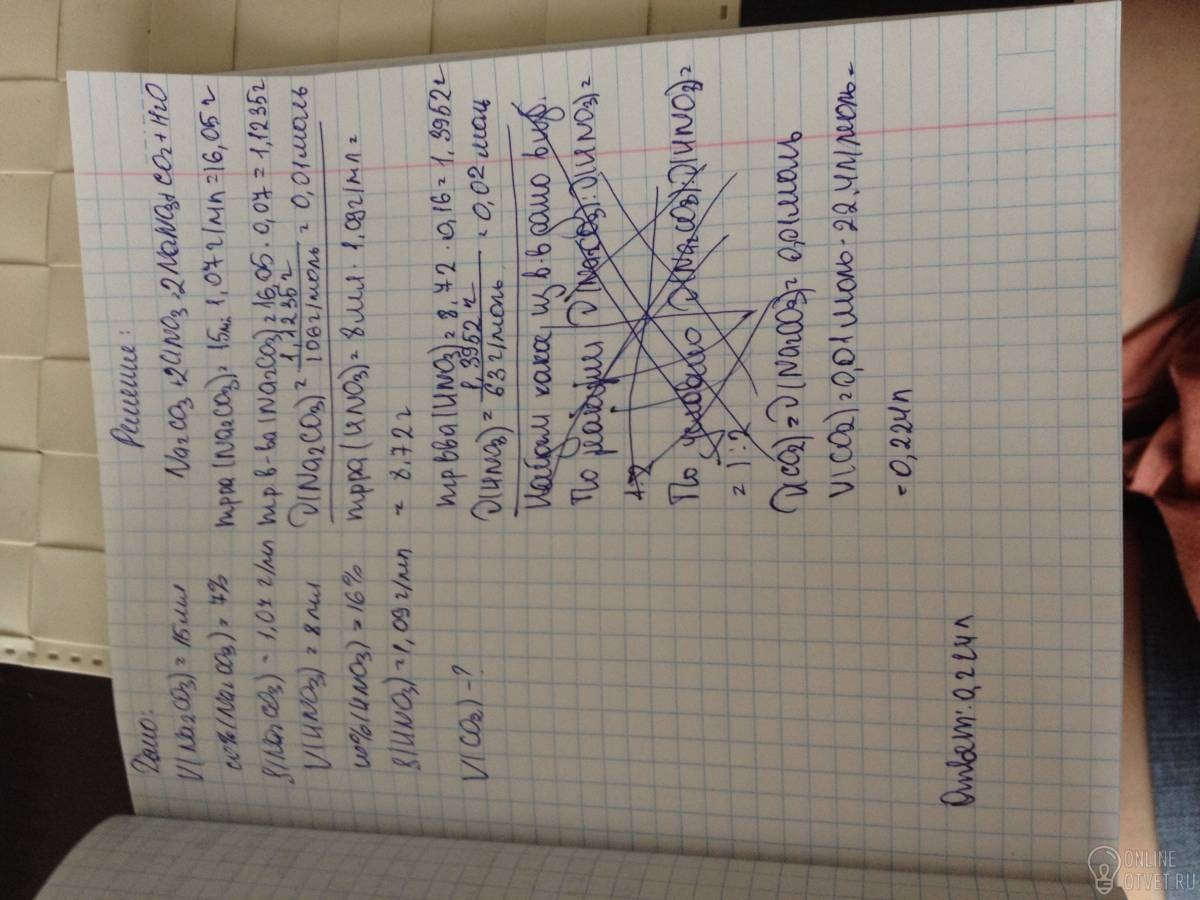 Дано:
V(Na2CO3) = 15мл
ω%(Na2CO3) = 7%
ρ(Na2CO3) = 1,07 г/мл
V(HNO3) = 8 мл
ω%(HNO3) = 16%
ρ(HNO3) = 1,09 г/мл
V(CO2) - ?
Решение:
Na2CO3 + 2HNO3 = 2NaNO3 + CO2 + H2O
mрра (Na2CO3) = 15мл 1,07 г/мл = 16,05 г
mр.в-ва (Na2CO3) = 16,05 · 0,07 = 1,1235г
ν(Na2CO3) = 1,1235г / 106г/моль = 0,01моль
mрра (HNO3) = 8мл · 1,09г/мл =
= 8.72 г
mрвва (HNO3) = 8,72 · 0,16 = 1,3952 г
ν(HNO3) = 1,3952 г / 63 г/моль = 0,02 мол
Найдем какое из в-в дано в изб.
По реакции ν(Na2CO3):ν(HNO3) =
1:2
По условию ν(Na2CO3):ν(HNO3) =
= 1:2
ν(CO2) = ν(Na2CO3) = 0,01моль
V(CO2) = 0,01 моль · 22,4л/моль =
= 0,224л
Ответ: 0,224л
ONLINE
OTVET.RU